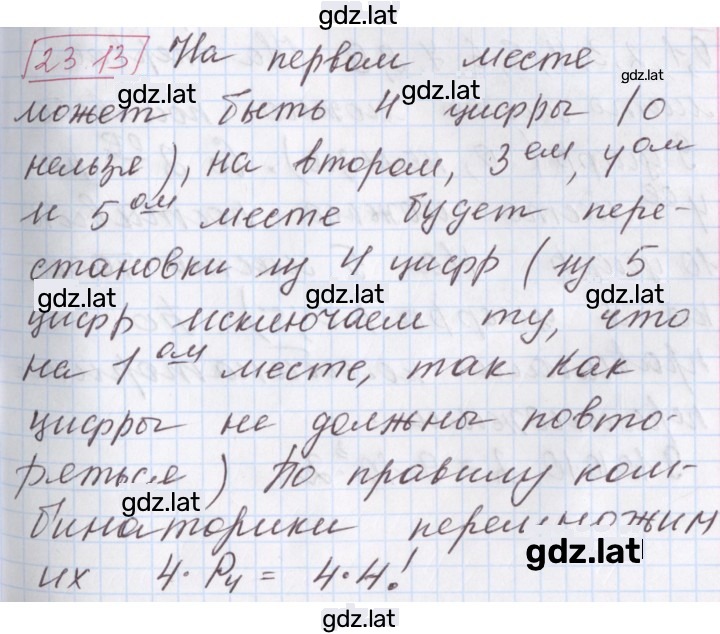 gdz.lat
23.13 На первом месте
gdz.lat gdz.lat gdz.lat
может быть 4 цифры (0
нельзя), на втором, 3ем, 4ом
и 5ом месте будет пере-
становки из 4 цифр (из 5
gdz.lat gdz.lat gdz.lat
цифр исключаем ту, что
на 1ом месте, так как
цифры не должны повто-
реться) По правилу ком-
gdz.lat
бинаторики перемножим
gdz.lat
их 4·P₄ = 4·4!
gdz.lat